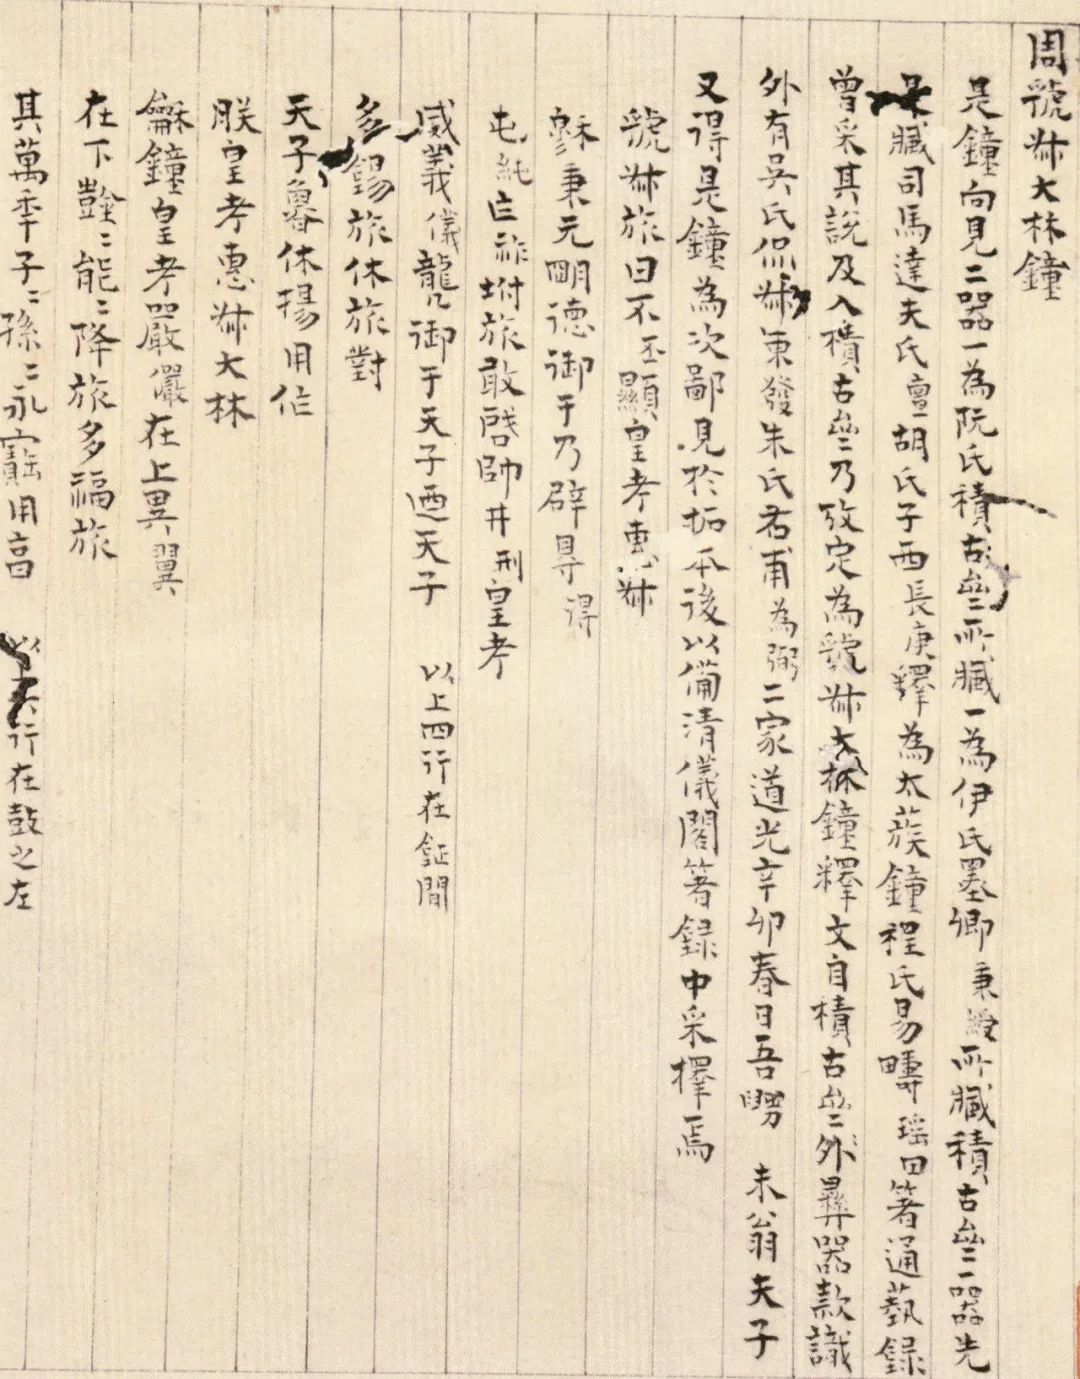 周虢叔大林鐘
是鐘向見二器一為阮氏積古齋所臧一為伊氏墨卿秉綬所臧積古齋一器先
臧司馬達夫氏亶胡氏子西長庚釋為太蔟鐘程氏易疇瑤田著通藝録
曾采其説及入積古齋乃攷定為虢叔大林鐘釋文自積古齋外彝器款識
外有吳氏侃叔東發朱氏右甫為弼二家道光辛卯春日吾甥 未翁夫子
又得是鐘為次鄙見於拓本後以備清儀閣著録中采擇焉
虢叔旅曰不丕顯皇考惠叔
穆秉元明德御于乃辟㝵得
屯純亡祚坿旅敢啓帥井刑皇考
威義儀龍御于天子迺天子 以上四行在鉦間
多錫旅休旅對
天子魯休揚用作
朕皇考惠叔大林
龢鐘皇考嚴儼在上異翼
在下數〻能〻降旅多福旅
其萬年子〻孫〻永寶用亯 以行在鼓之左